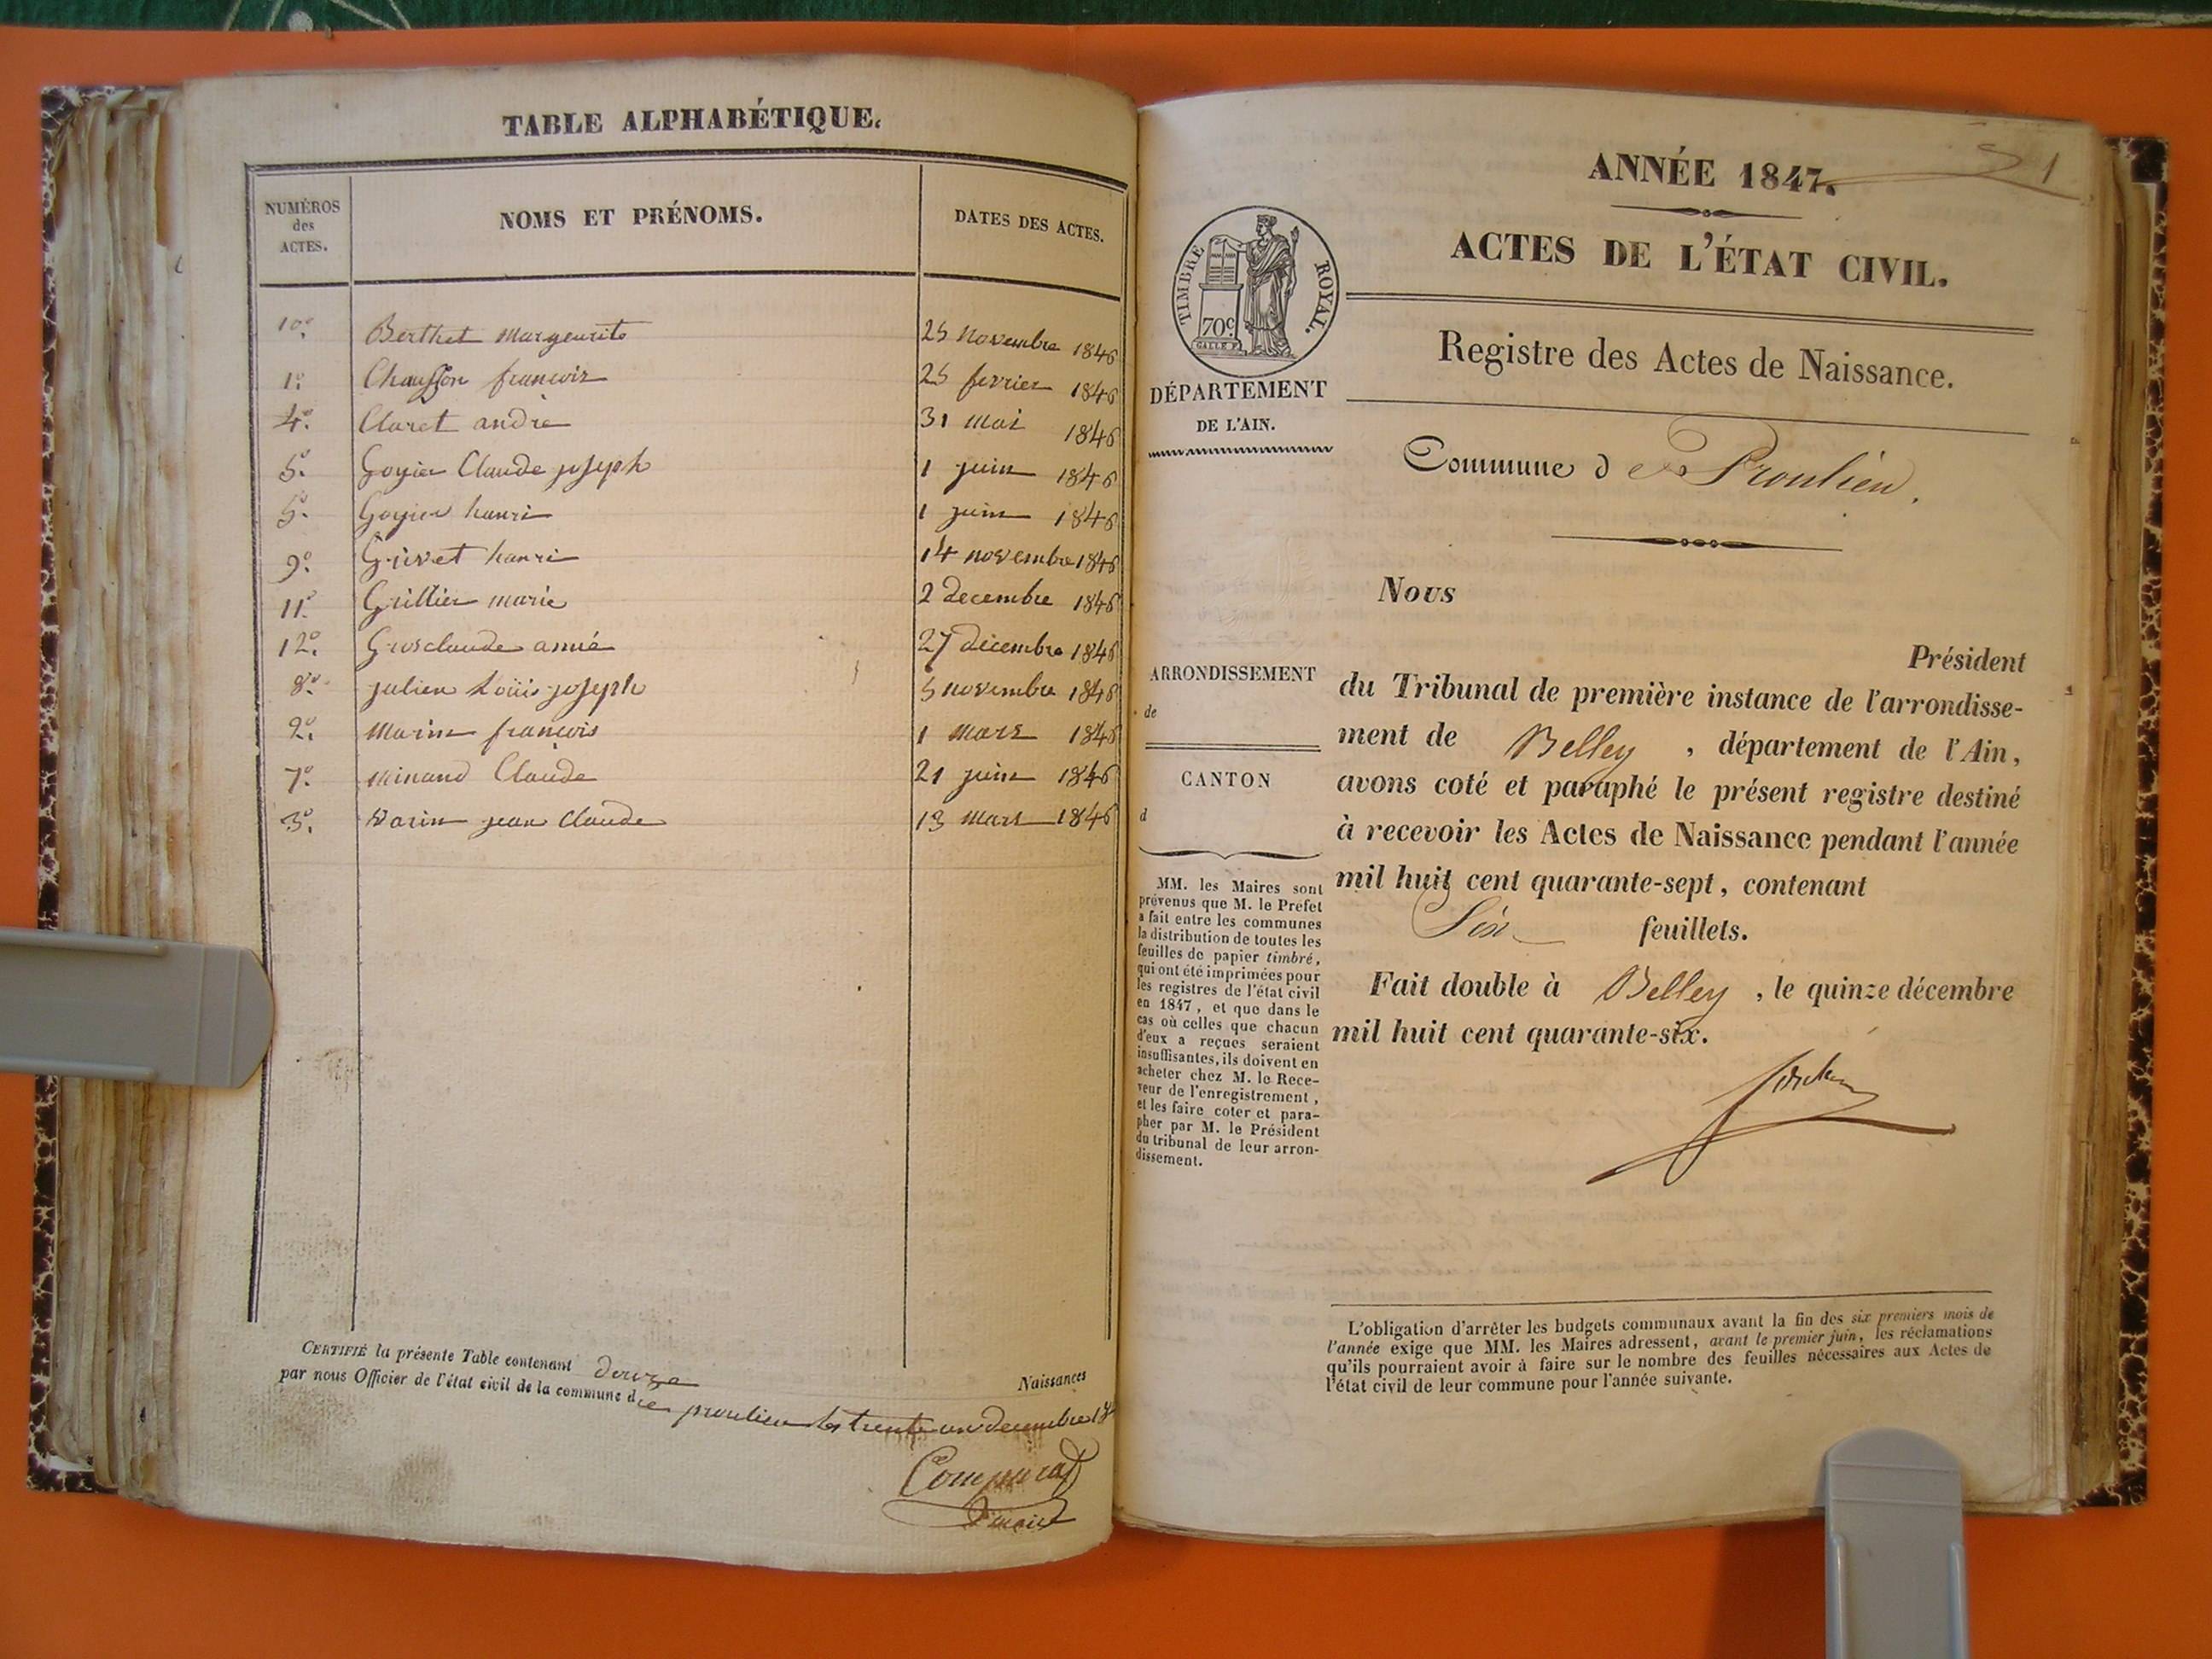 TABLE ALPHABÉTIQUE.
NUMÉROS des ACTES. NOMS ET PRÉNOMS. DATES DES ACTES.
10.° Berthet Margeurite 25 novembre 1846
1.° Chausson francois 25 fevrier 1846
4.° Claret andré 31 mai 1846
5.° Goyier Claude joseph 1 juin 1846
Goyier henri 1 juin 1846
9.° Grivet henri 14 novembre 1846
11.° Grillier marie 2 decembre 1846
12.° Grosclaude annié 27 decembre 1846
8.° julien Loüis joseph 5 novembre 1846
2.° Marin francois 1 mars 1846
7.° minand Claude 21 juin 1846
3.° Varin jean Claude 13 mars 1846
CERTIFIÉ la présente Table contenant douze Naissances
par nous Officier de l'état civil de la commune de proulieu les trente un decembre
Maire
ANNÉE 1847.
1
ACTES DE L'ÉTAT CIVIL.
TIMBRE ROYAL.
70c.
Registre des Actes de Naissance.
DÉPARTEMENT
DE L'AIN.
Commune de Proulieu.
Nous
Président
du Tribunal de première instance de l'arrondisse-
ment de Belley, département de l'Ain,
avons coté et paraphé le présent registre destiné
à recevoir les Actes de Naissance pendant l'année
mil huit cent quarante-sept, contenant
Six feuillets.
Fait double à Belley, le quinze décembre
mil huit cent quarante-six.
ARRONDISSEMENT
de
CANTON
d
MM. les Maires sont
prévenus que M. le Préfet
a fait entre les communes
la distribution de toutes les
feuilles de papier timbré,
qui ont été imprimées pour
les registres de l'état civil
en 1847, et que dans le
cas où celles que chacun
d'eux a reçues seraient
insuffisantes, ils doivent en
acheter chez M. le Rece-
veur de l'enregistrement,
et les faire coter et para-
pher par M. le Président
du tribunal de leur arron-
dissement.
L'obligation d'arrêter les budgets communaux avant la fin des six premiers mois de
l'année exige que MM. les Maires adressent, avant le premier juin, les réclamations
qu'ils pourraient avoir à faire sur le nombre des feuilles nécessaires aux Actes de
l'état civil de leur commune pour l'année suivante.